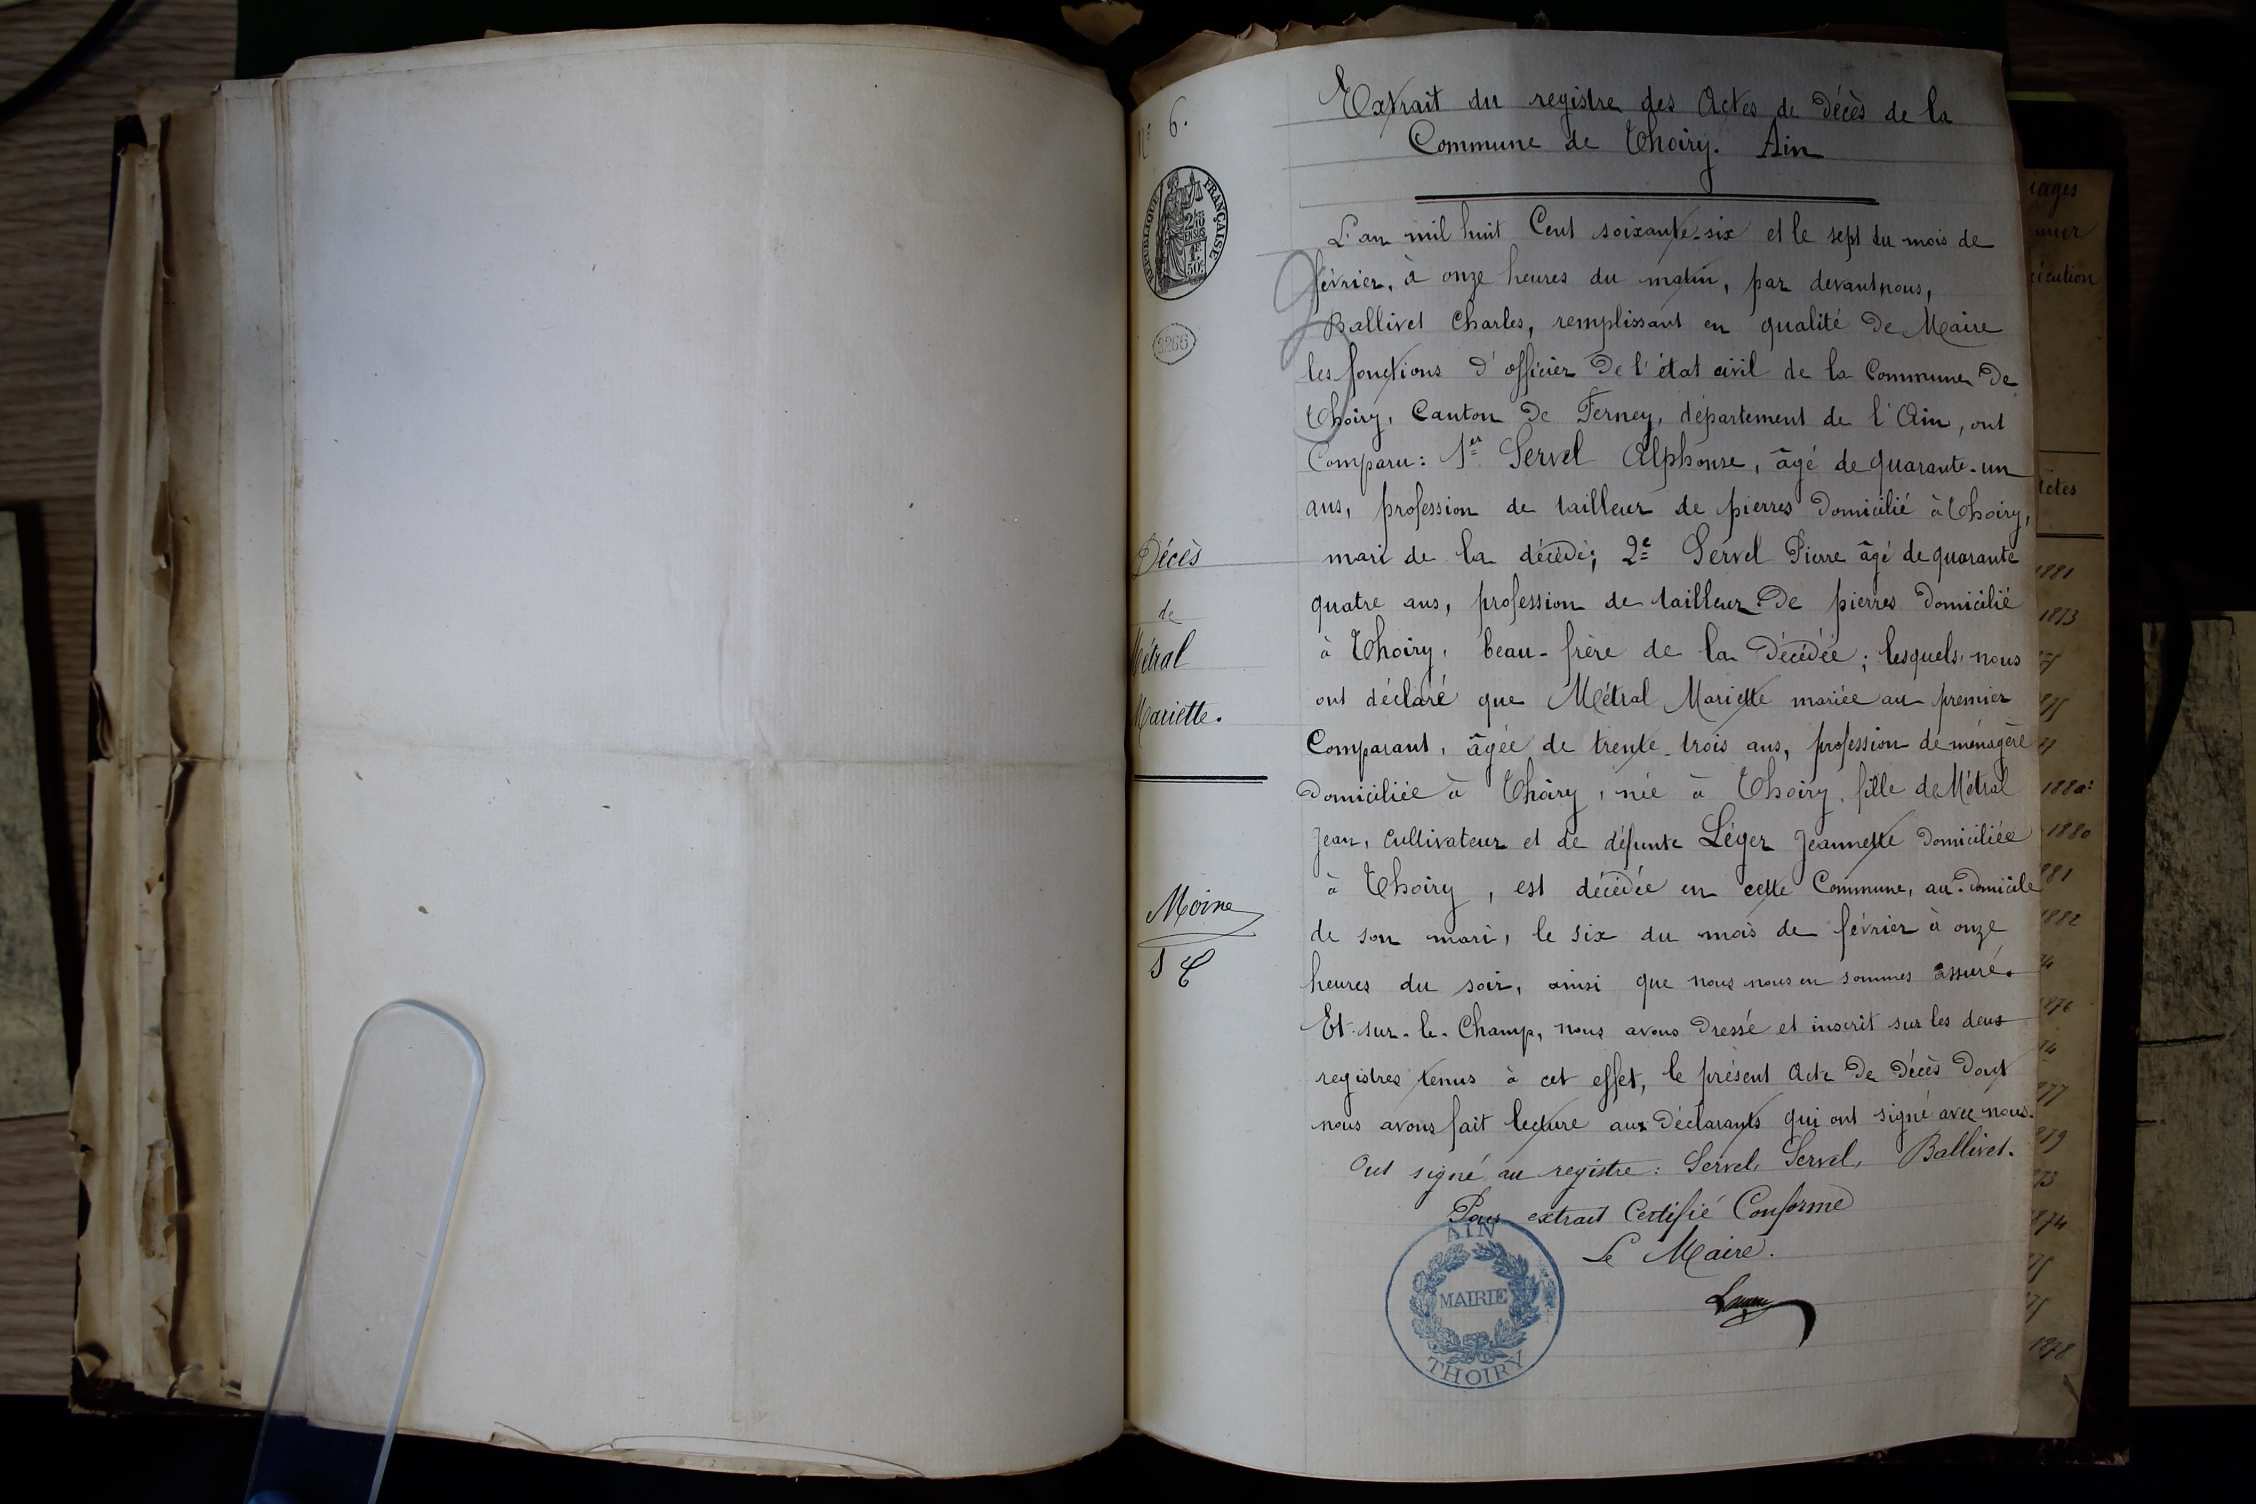 N° 6.
RÉPUBLIQUE FRANÇAISE
2/10
EN SUS
1F
50c
3266
Décès
de
Métral
Mariette.
Moine
Extrait du registre des Actes de Décès de la
Commune de Thoiry. Ain
L'an mil huit Cent soixante-six et le sept du mois de
février, à onze heures du matin, par devant nous,
Ballivet Charles, remplissant en qualité de Maire
les fonctions d'officier de l'état civil de la Commune de
Thoiry, Canton de Ferney, département de l'Ain, ont
Comparu: 1er Servel Alphonse, âgé de quarante-un
ans, profession de tailleur de pierres domicilié à Thoiry,
mari de la décédé; 2e Servel Pierre âgé de quarante
quatre ans, profession de tailleur de pierres domicilié
à Thoiry, beau-frère de la décédée; lesquels nous
ont déclaré que Métral Mariette mariée au premier
Comparant, âgée de trente-trois ans, profession de ménagère
domiciliée à Thoiry, née à Thoiry, fille de Métral
Jean, cultivateur et de défunte Léger Jeannette domiciliée
à Thoiry, est décédée en cette Commune, au domicile
de son mari, le six du mois de février à onze
heures du soir, ainsi que nous nous en sommes assuré.
Et-sur-le-Champ, nous avons dressé et inscrit sur les deux
registres tenus à cet effet, le présent Acte de Décès dont
nous avons fait lecture aux déclarants qui ont signé avec nous.
Ont signé au registre: Servel, Servel, Ballivet.
Pour extrait Certifié Conforme
Le Maire.
AIN
MAIRIE
THOIRY
iages
écution
1881
1873
1880
1882
1876
1874
1878